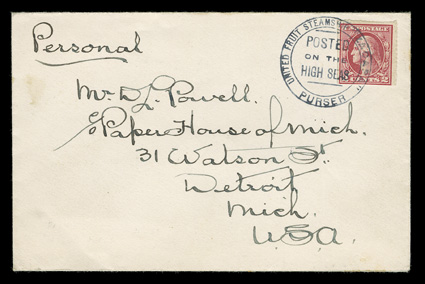 Personal
UNITED FRUIT STEAMSHIP
POSTED
ON THE
HIGH SEAS
PURSER
POSTAGE
CENTS 2
Mr. D. L. Powell.
c/o Paper House of Mich.
31 Watson St.
Detroit
Mich.
U.S.A.